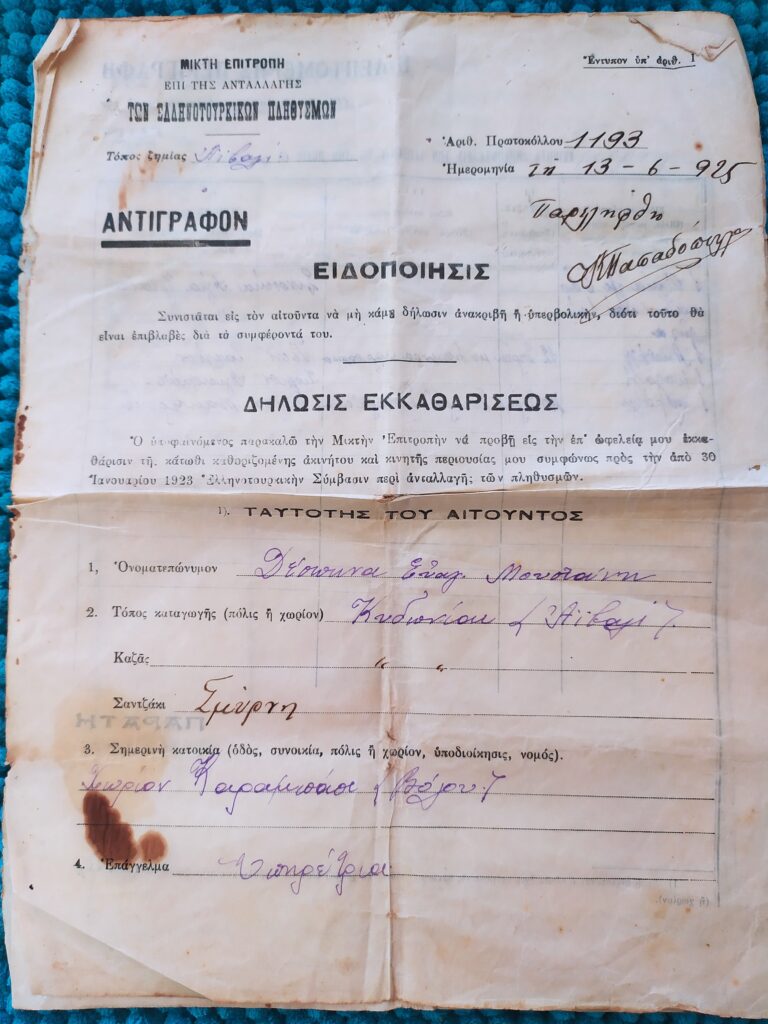 ΜΙΚΤΗ ΕΠΙΤΡΟΠΗ
ΕΠΙ ΤΗΣ ΑΝΤΑΛΛΑΓΗΣ
ΤΩΝ ΕΛΛΗΝΟΤΟΥΡΚΙΚΩΝ ΠΛΗΘΥΣΜΩΝ
Ἔντυπον ὑπ' ἀριθ. 1
Τόπος ζημίας Ἀϊβαλί
Ἀριθ. Πρωτοκόλλου 1193
Ἡμερομηνία τῇ 13-6-925
Παρελήφθη
ΚΠαπαδόπουλος
ΑΝΤΙΓΡΑΦΟΝ
ΕΙΔΟΠΟΙΗΣΙΣ
Συνισιᾶται εἰς τὸν αἰτοῦντα νὰ μὴ κάμῃ δήλωσιν ἀνακριβῆ ἢ ὑπερβολικὴν, διότι τοῦτο θὰ
εἶναι ἐπιβλαβὲς διὰ τὰ συμφέροντά του.
ΔΗΛΩΣΙΣ ΕΚΚΑΘΑΡΙΣΕΩΣ
Ὁ ὑποφαινόμενος παρακαλῶ τὴν Μικτὴν Ἐπιτροπὴν νὰ προβῇ εἰς τὴν ἐπ' ὠφελείᾳ μου ἐκκα-
θάρισιν τῆ. κάτωθι καθοριζομένης ἀκινήτου καὶ κινητῆς περιουσίας μου συμφώνως πρὸς τὴν ἀπὸ 30
Ἰανουαρίου 1923 Ἑλληνοτουρκικὴν Σύμβασιν περὶ ἀνταλλαγῆς τῶν πληθυσμῶν.
1). ΤΑΥΤΟΤΗΣ ΤΟΥ ΑΙΤΟΥΝΤΟΣ
1, Ὀνοματεπώνυμον Δέσποινα Εὐαγ. Μουτάνη
2. Τόπος καταγωγῆς (πόλις ἢ χωρίον) Κυδωνίαι (Ἀϊβαλί).
Καζᾶς " "
Σαντζάκι Σμύρνη
3. Σημερινὴ κατοικία (ὁδὸς, συνοικία, πόλις ἢ χωρίον, ὑποδιοίκησις, νομός).
Χωρίον Καραμπάσι (Βόλου)
4. Ἐπάγγελμα Ὑπηρέτρια